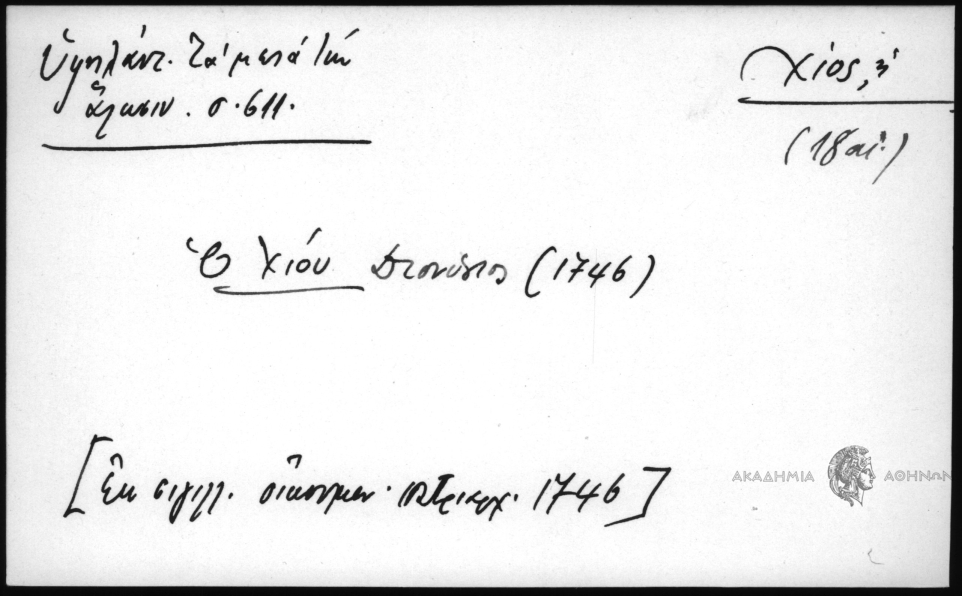 Ὑψηλάντ. Τὰ μετὰ τὴν
ἅλωσιν. σ. 611.
Χίος, ἡ
(18 αἰ.)
Ὁ Χίου Διονύσιος (1746)
[Ἐκ σιγιλλ. οἰκουμεν. πατριαρχ. 1746]
ΑΚΑΔΗΜΙΑ ΑΘΗΝΩΝ